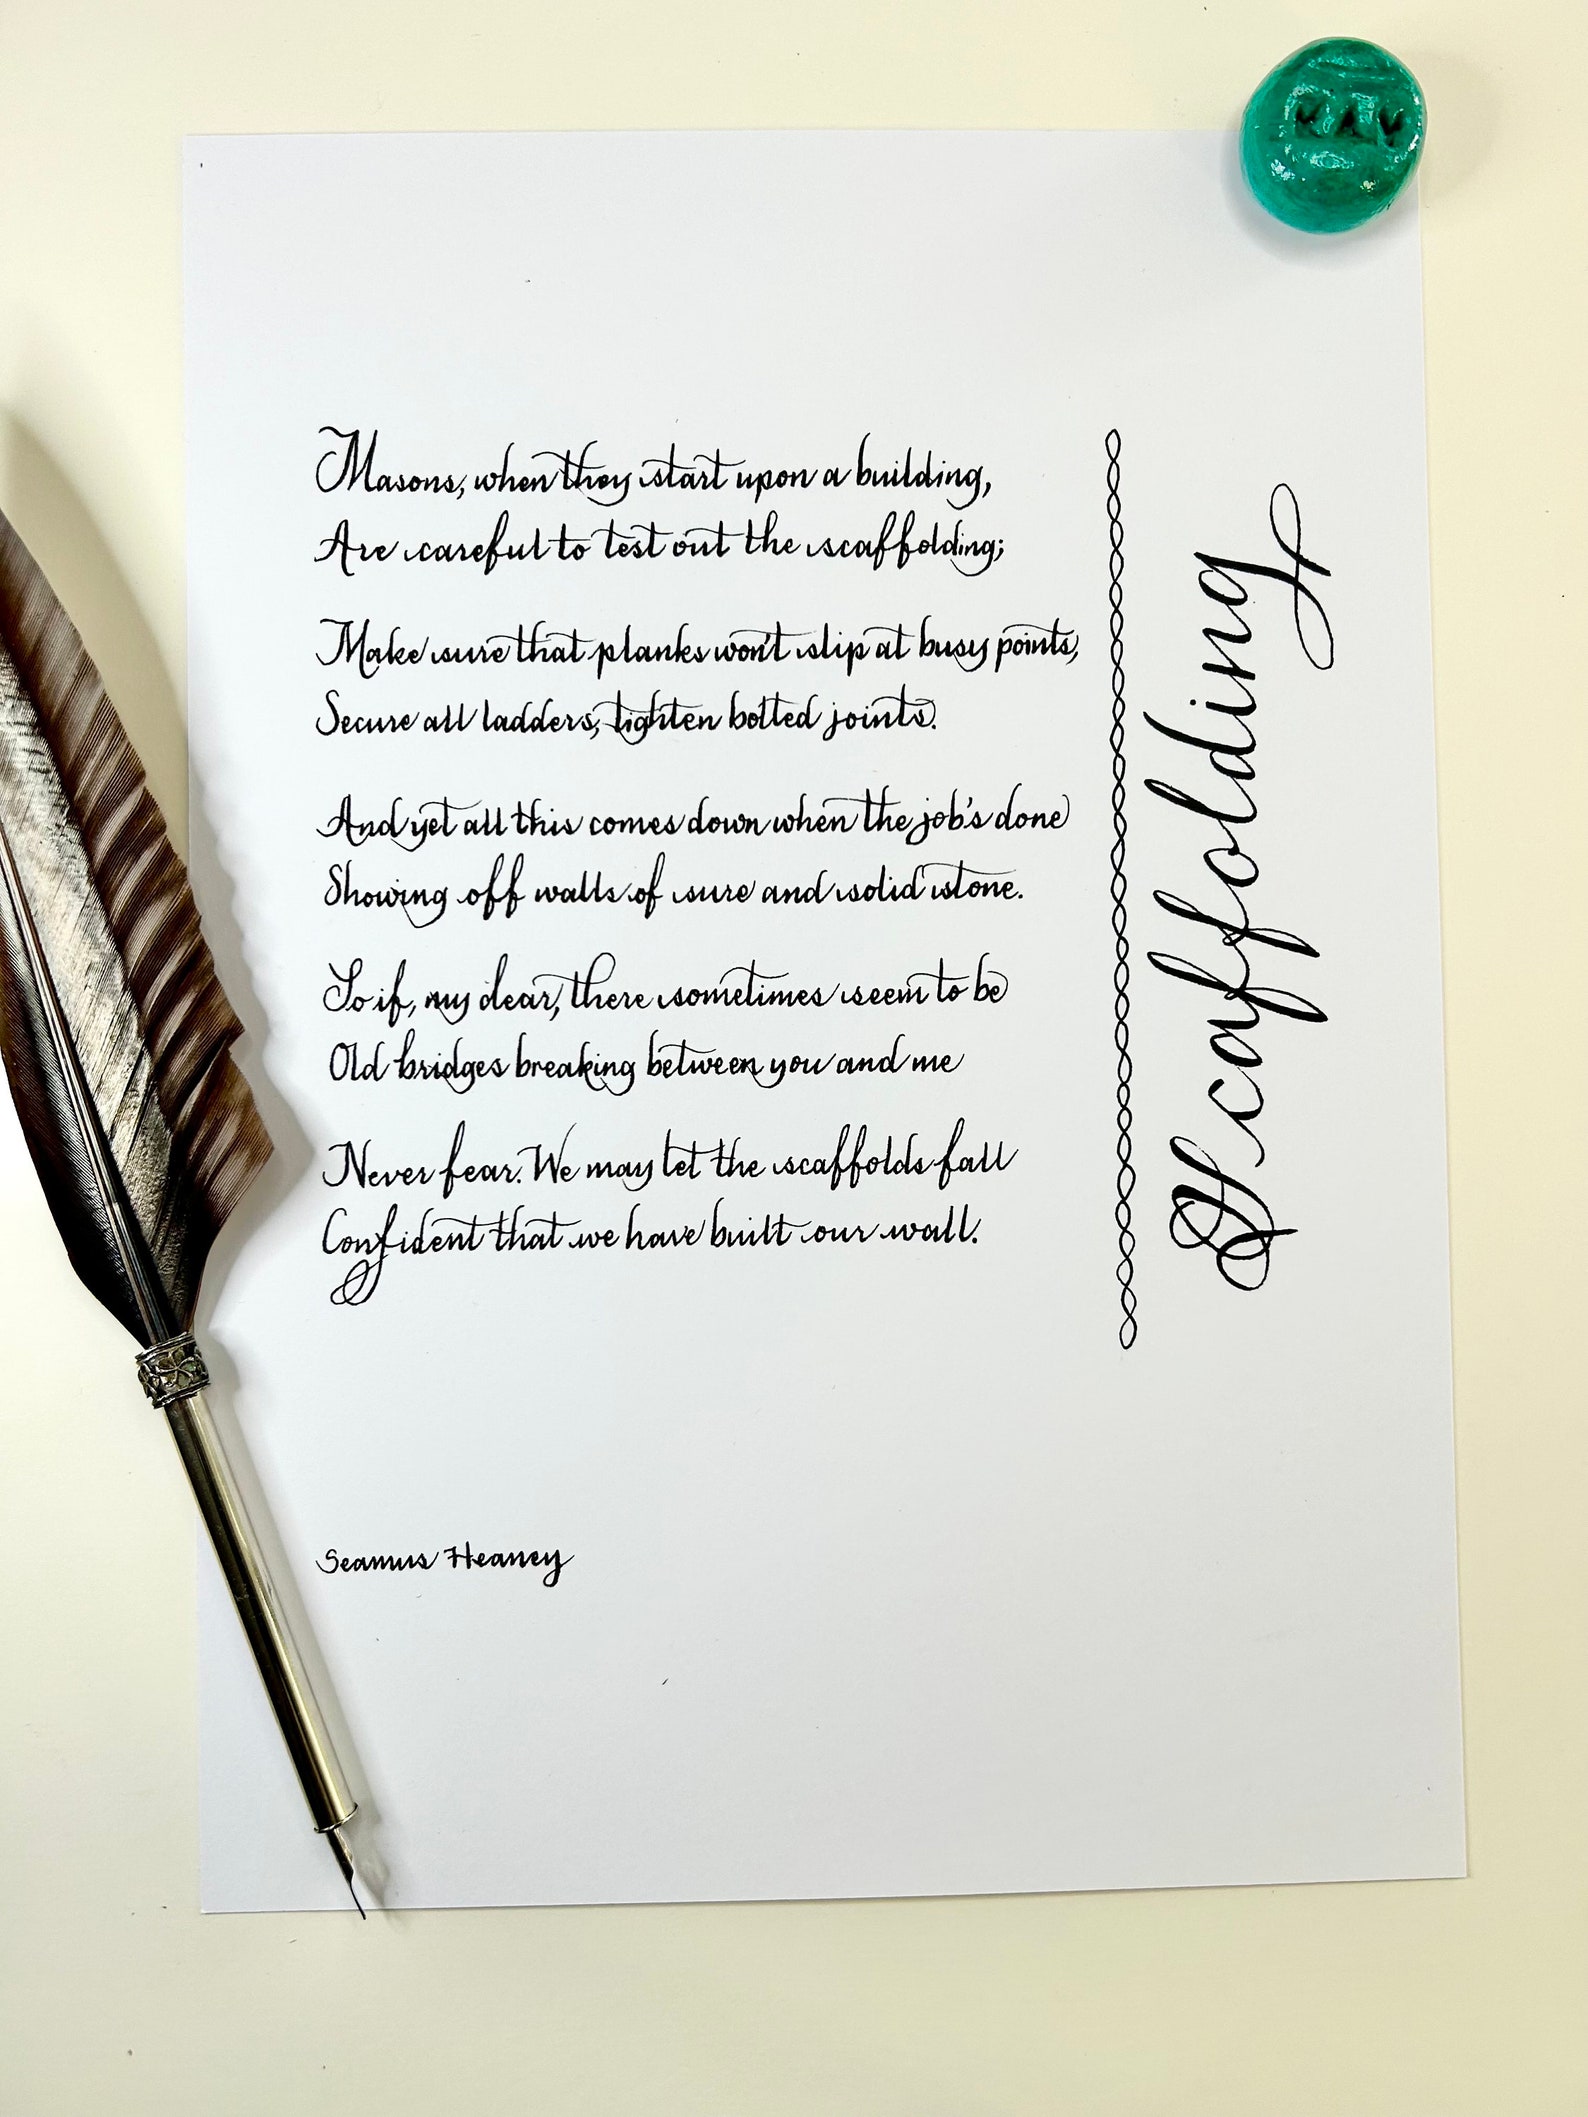 KAY
Scaffolding
Masons, when they start upon a building,
Are careful to test out the scaffolding;
Make sure that planks won't slip at busy points,
Secure all ladders, tighten bolted joints.
And yet all this comes down when the job's done
Showing off walls of sure and solid stone.
So if, my dear, there sometimes seem to be
Old bridges breaking between you and me
Never fear. We may let the scaffolds fall
Confident that we have built our wall.
Seamus Heaney